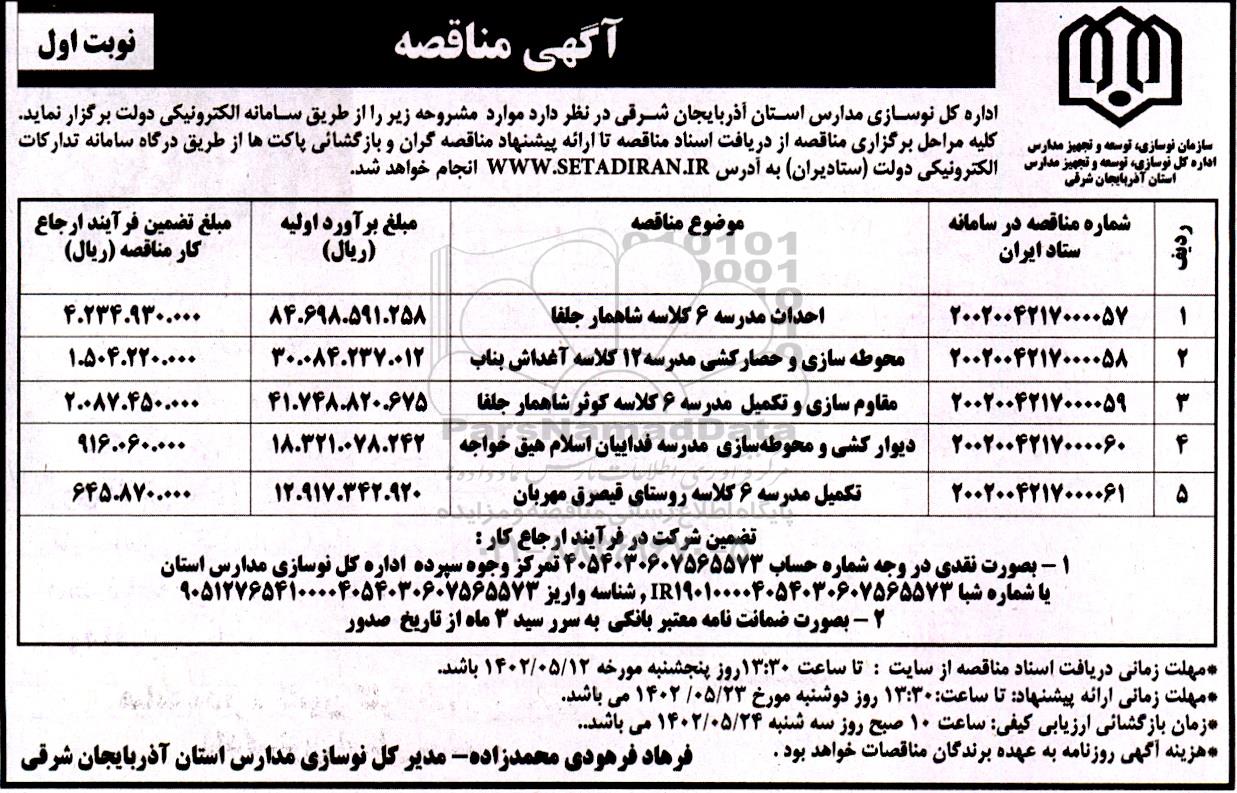 آگهی مناقصه
نوبت اول
سازمان نوسازی، توسعه و تجهیز مدارس
اداره کل نوسازی، توسعه و تجهیز مدارس
استان آذربایجان شرقی
اداره کل نوسازی مدارس استان آذربایجان شرقی در نظر دارد موارد مشروحه زیر را از طریق سامانه الکترونیکی دولت برگزار نماید.
کلیه مراحل برگزاری مناقصه از دریافت اسناد مناقصه تا ارائه پیشنهاد مناقصه گران و بازگشائی پاکت ها از طریق درگاه سامانه تدارکات
الکترونیکی دولت (ستادیران) به آدرس WWW.SETADIRAN.IR انجام خواهد شد.
ردیف | شماره مناقصه در سامانه ستاد ایران | موضوع مناقصه | مبلغ برآورد اولیه (ریال) | مبلغ تضمین فرآیند ارجاع کار مناقصه (ریال)
۱ | ۲۰۰۲۰۰۴۲۱۷۰۰۰۰۵۷ | احداث مدرسه ۶ کلاسه شاهمار جلفا | ۸۴.۶۹۸.۵۹۱.۲۵۸ | ۴.۲۳۴.۹۳۰.۰۰۰
۲ | ۲۰۰۲۰۰۴۲۱۷۰۰۰۰۵۸ | محوطه سازی و حصارکشی مدرسه۱۲ کلاسه آغداش بناب | ۳۰.۰۸۴.۲۳۷.۰۱۲ | ۱.۵۰۴.۲۲۰.۰۰۰
۳ | ۲۰۰۲۰۰۴۲۱۷۰۰۰۰۵۹ | مقاوم سازی و تکمیل مدرسه ۶ کلاسه کوثر شاهمار جلفا | ۴۱.۷۴۸.۸۲۰.۶۷۵ | ۲.۰۸۷.۴۵۰.۰۰۰
۴ | ۲۰۰۲۰۰۴۲۱۷۰۰۰۰۶۰ | دیوار کشی و محوطه‌سازی مدرسه فداییان اسلام هیق خواجه | ۱۸.۳۲۱.۰۷۸.۲۴۲ | ۹۱۶.۰۶۰.۰۰۰
۵ | ۲۰۰۲۰۰۴۲۱۷۰۰۰۰۶۱ | تکمیل مدرسه ۶ کلاسه روستای قیصرق مهربان | ۱۲.۹۱۷.۳۴۲.۹۲۰ | ۶۴۵.۸۷۰.۰۰۰
ParsNamadData
پایگاه اطلاع رسانی مناقصه و مزایده
تضمین شرکت در فرآیند ارجاع کار :
۱ – بصورت نقدی در وجه شماره حساب ۴۰۵۴۰۳۰۶۰۷۵۶۵۵۷۳ تمرکز وجوه سپرده اداره کل نوسازی مدارس استان
یا شماره شبا IR۱۹۰۱۰۰۰۰۴۰۵۴۰۳۰۶۰۷۵۶۵۵۷۳ , شناسه واریز ۹۰۵۱۲۷۶۵۴۱۰۰۰۰۴۰۵۴۰۳۰۶۰۷۵۶۵۵۷۳
۲ – بصورت ضمانت نامه معتبر بانکی به سرر سید ۳ ماه از تاریخ صدور
*مهلت زمانی دریافت اسناد مناقصه از سایت : تا ساعت ۱۳:۳۰روز پنجشنبه مورخه ۱۴۰۲/۰۵/۱۲ باشد.
*مهلت زمانی ارائه پیشنهاد: تا ساعت:۱۳:۳۰ روز دوشنبه مورخ ۱۴۰۲ /۰۵/۲۳ می باشد.
*زمان بازگشائی ارزیابی کیفی: ساعت ۱۰ صبح روز سه شنبه ۱۴۰۲/۰۵/۲۴ می باشد..
*هزینه آگهی روزنامه به عهده برندگان مناقصات خواهد بود .
فرهاد فرهودی محمدزاده– مدیر کل نوسازی مدارس استان آذربایجان شرقی